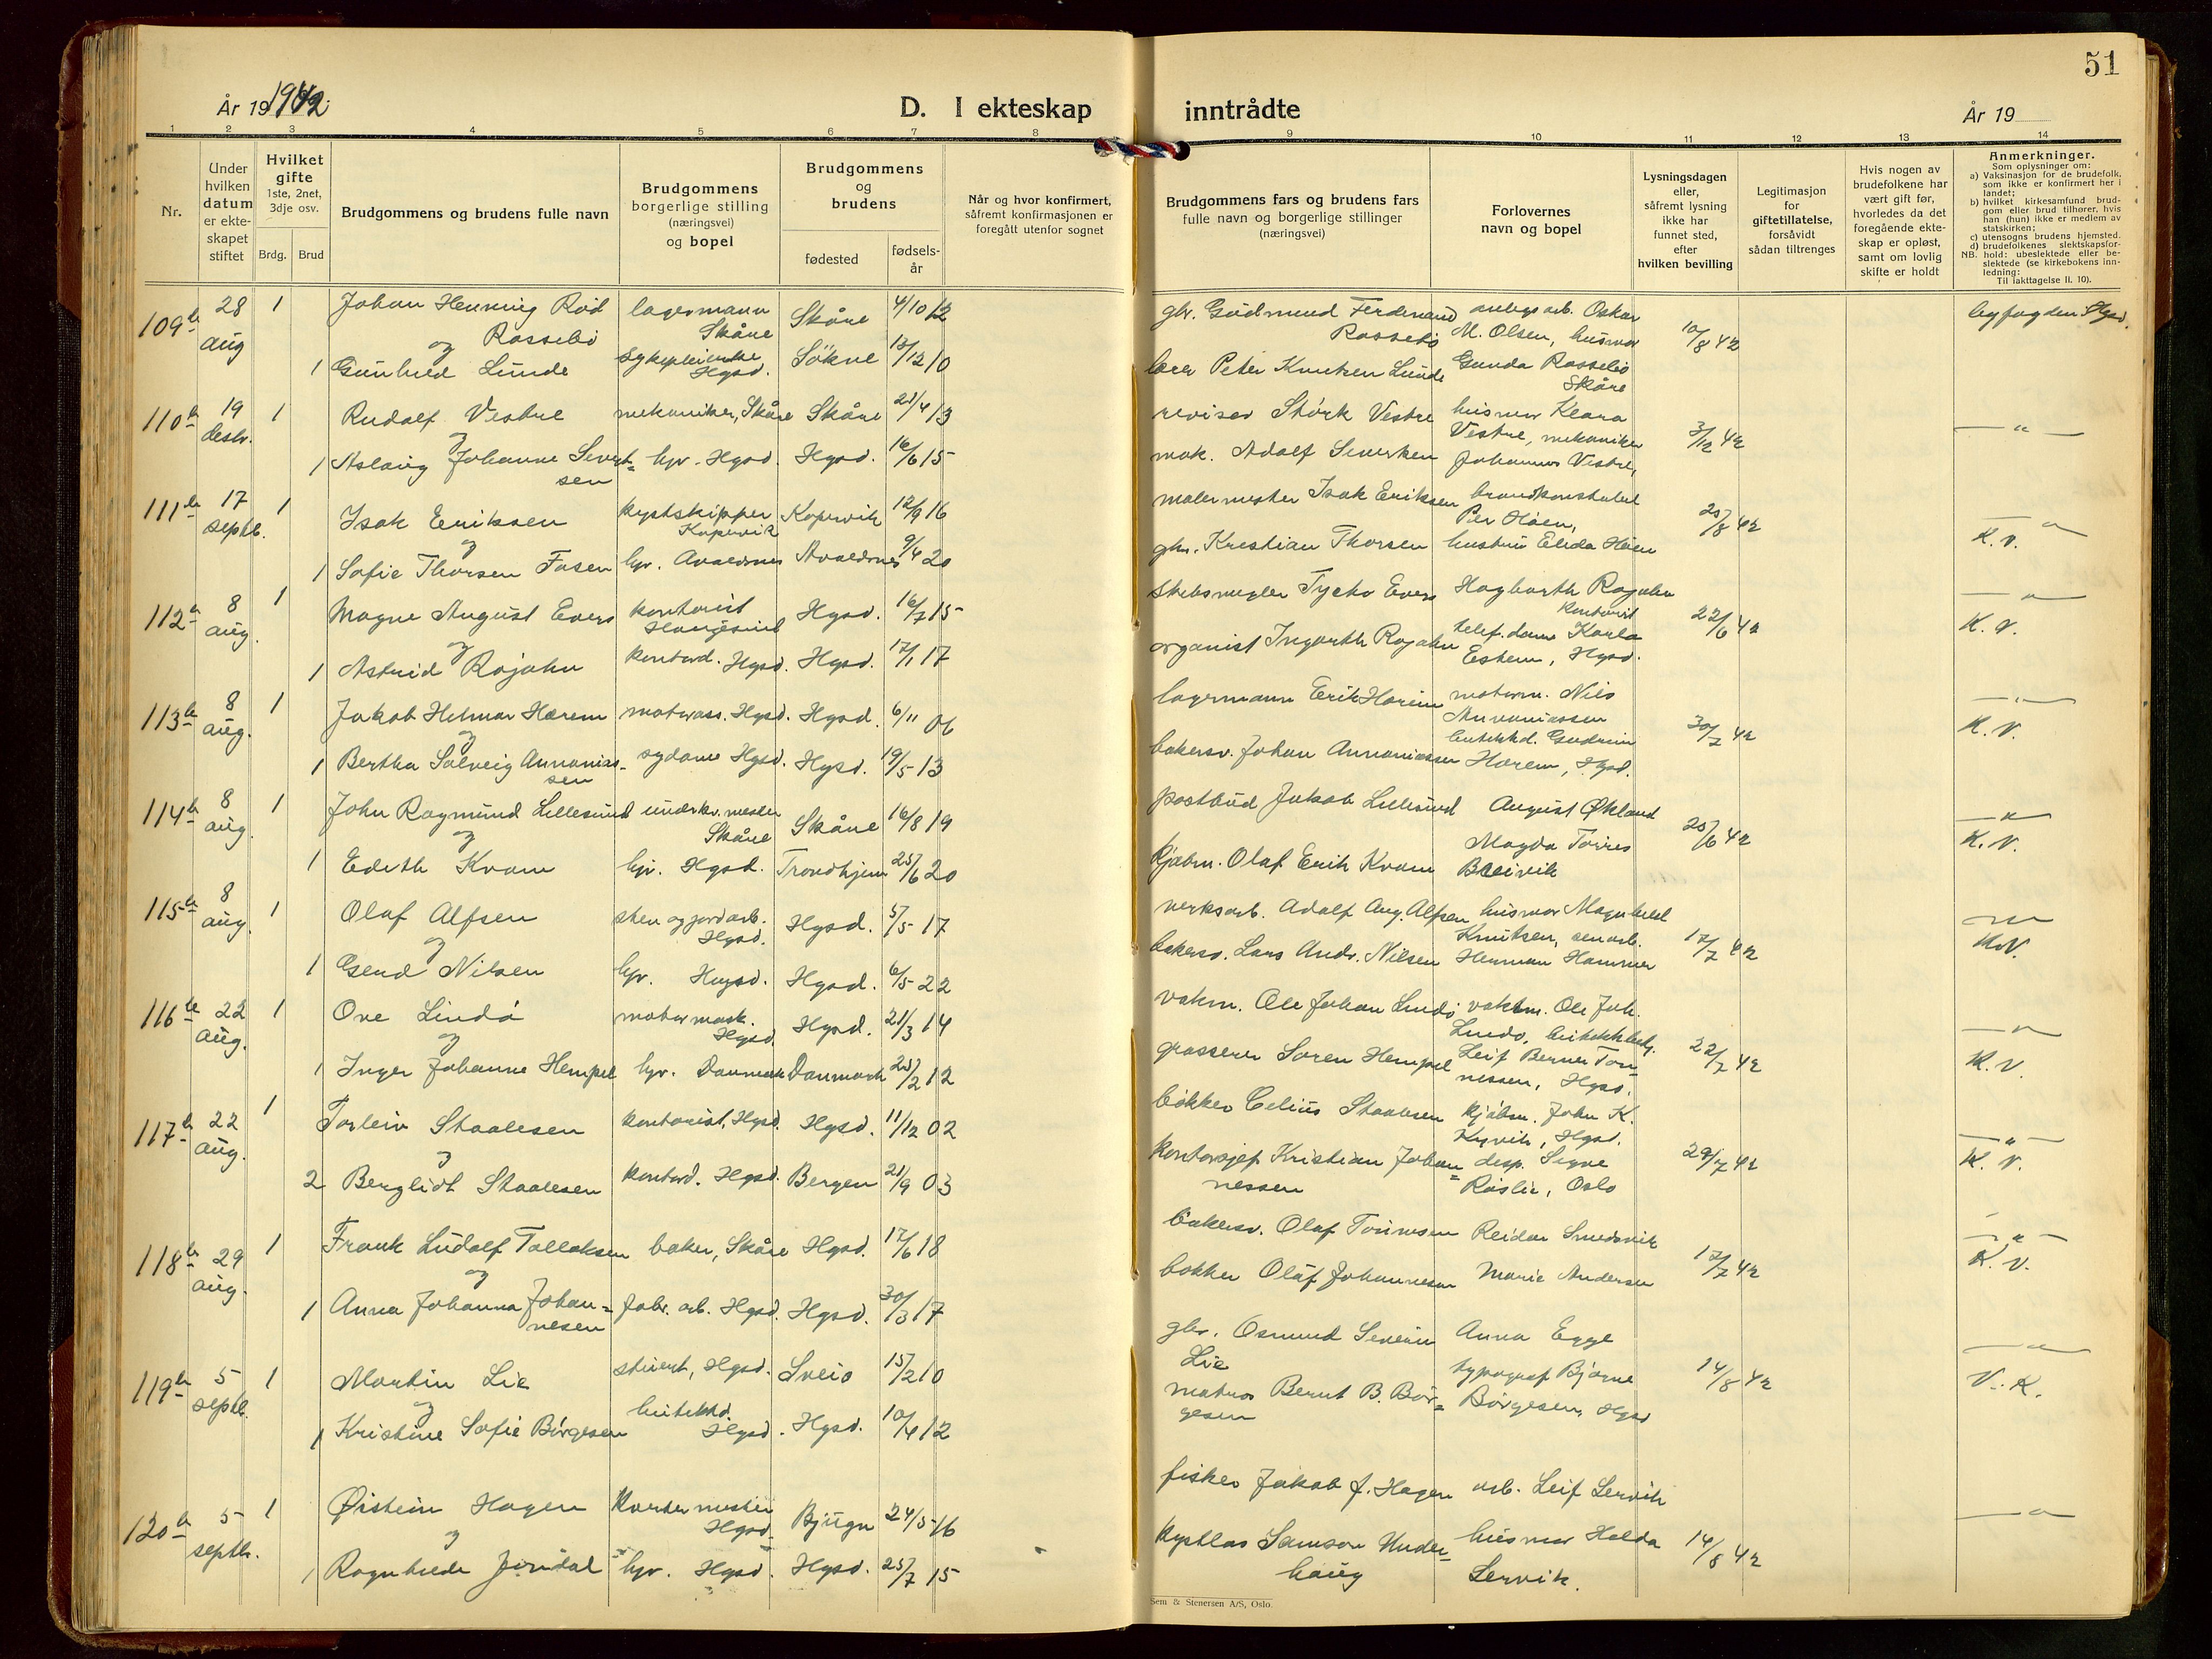 51
År 19 1942
D. I ekteskap inntrådte
År 19
1 2 3 4 5 6 7 8 9 10 11 12 13 14
Nr.
Under hvilken datum er ekteskapet stiftet
Hvilket gifte
1ste, 2net, 3dje osv.
Brdg. Brud
Brudgommens og brudens fulle navn
Brudgommens borgerlige stilling (næringsvei) og bopel
Brudgommens og brudens
fødested
fødsels-år
Når og hvor konfirmert, såfremt konfirmasjonen er foregått utenfor sognet
Brudgommens fars og brudens fars fulle navn og borgerlige stillinger (næringsvei)
Forlovernes navn og bopel
Lysningsdagen eller, såfremt lysning ikke har funnet sted, efter hvilken bevilling
Legitimasjon for giftetillatelse, forsåvidt sådan tiltrenges
Hvis nogen av brudefolkene har vært gift før, hvorledes da det foregående ekteskap er opløst, samt om lovlig skifte er holdt
Anmerkninger.
Som oplysninger om:
a) Vaksinasjon for de brudefolk, som ikke er konfirmert her i landet;
b) hvilket kirkesamfund brudgom eller brud tilhører, hvis han (hun) ikke er medlem av statskirken;
c) utensogns brudens hjemsted.
d) brudefolkenes slektskapsforhold: ubeslektede eller beslektede (se kirkebokens innledning:
NB.
Til iakttagelse II. 10).
109 b 28 aug 1 Johan Henning Rød Rossebø lagermann Skåre Skåre 4/10 12 gbr. Gudmund Ferdinand Rossebø anlegsarb. Oskar M. Olsen, husmor 10/8 42 byfogden Hgsd.
og
1 Gunhild Lunde sykepleierske Hgsd. Søkne 13/12 10 lærer Peter Knutsen Lunde Gunda Rossebø Skåre
110 b 19 desbr. 1 Rudolf Vestre mekaniker, Skåre Skåre 21/4 13 revisor Størk Vestre husmor Klara Vestre, mekaniker 3/12 42 — " —
og
1 Aslaug Johanne Severtsen hjv. Hgsd. Hgsd. 16/6 15 mak. Adolf Severtsen Johannes Vestre,
111 b 17 septb. 1 Isak Eriksen kystskipper Kopervik Kopervik 12/9 16 malermester Isak Eriksen brandkonstabel Per Høien, 25/8 42 — " — K.V.
og
1 Sofie Thorsen Fosen hjv. Avaldsnes Avaldsnes 9/4 20 gbr. Kristian Thorsen hustru Elida Høien
112 b 8 aug. 1 Magne August Evers kontorist Haugesund Hgsd. 16/7 15 skibsmegler Tycho Evers Hagbarth Rojahn kontorist 22/6 42 — " — K.V.
og
1 Astrid Rojahn kontord. Hgsd. Hgsd. 17/1 17 organist Ingvarth Rojahn telef.dame Karla Estem, Hgsd.
113 b 8 aug. 1 Jakob Helmar Hærem motorass. Hgsd. Hgsd. 6/11 06 lagermann Erik Hærem motorm. Nils Annaniassen 30/7 42 — " — K.V.
og
1 Bertha Solveig Annaniassen sydame Hgsd. Hgsd. 19/5 13 bakersv. Johan Annaniassen butikkd. Gudrun Hærem, Hgsd.
114 b 8 aug. 1 John Ragmund Lillesund underkv.mester Skåre Skåre 16/8 19 postbud Jakob Lillesund August Økland 25/6 42 — " — K.V.
og
1 Edith Kvam hjv. Hgsd. Trondhjem 25/6 20 kjøbm. Olaf Erik Kvam Magda Torres Breivik
115 b 8 aug. 1 Olaf Alfsen sten og jordarb. Hgsd. Hgsd. 5/5 17 verksarb. Adolf Aug. Alfsen husmor Magnhild Knutsen, 17/7 42 — " — K.V.
og
1 Gerd Nilsen hjv. Hugsd. Hgsd. 6/5 22 bakersv. Lars Andr. Nilsen Herman Hammer
116 b 22 aug. 1 Ove Lindø motormask. Hgsd. Hgsd. 21/3 14 vaktm. Ole Johan Lindø vaktm. Ole Joh. Lindø, 22/7 42 — " — K.V.
og
1 Inger Johanne Hempel hjv. Danmark Danmark 25/2 12 grosserer Søren Hempel Leif Berner Tonnessen, Hgsd.
117 b 22 aug. 1 Torleiv Staalesen kontorist, Hgsd. Hgsd. 11/12 02 bøkker Celius Staalesen kjøbm. John K. Kyvik, Hgsd. 29/7 42 — " — K.V.
og
2 Bergliot Staalesen kontord. Hgsd. Bergen 21/9 03 kontorsjef Kristian Johannessen disp. Signe Røslie, Oslo
118 b 29 aug. 1 Frank Ludolf Tollaksen baker, Skåre Hgsd. 17/6 18 bakersv. Olaf Reidar Smedsvik 17/7 42 — " — K.V.
og
1 Anna Johanna Johannesen fabr. arb. Hgsd. Hgsd. 30/3 17 bøkker Olaf Johannesen Marie Andersen
119 b 5 septb. 1 Martin Lie stuert, Hgsd. Sveio 15/2 10 gbr. Osmund Severin Lie Anna Egge 14/8 42 — " — V.K.
og
1 Kristine Sofie Børgesen butikkd. Hgsd. Hgsd. 10/4 12 matros Bernt B. Børgesen typograf Bjarne Børgesen, Hgsd
120 b 5 septb. 1 Øistein Hagen kvartermester Hgsd. Bjugn 24/5 16 fisker Jakob J. Hagen arb. Leif Lervik 14/8 42 — " —
og
1 Ragnhilde Jøndal hjv. Hgsd. Hgsd. 25/7 15 kystlos Samson Underhaug husmor Halda Lervik.
Sem & Stenersen A/S, Oslo.